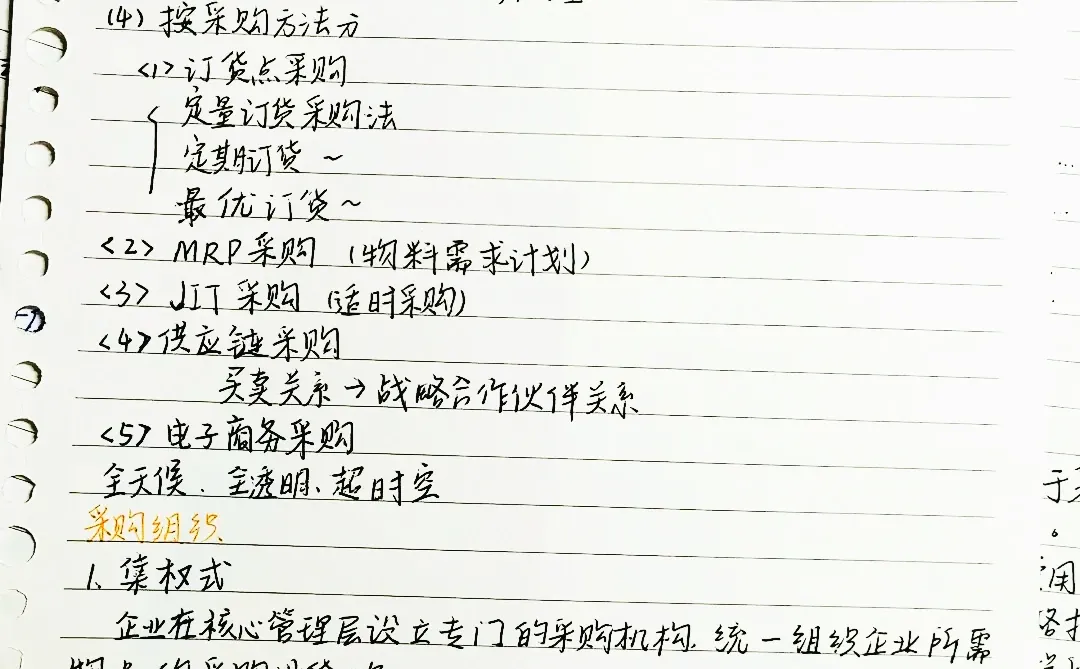 (4) 按采购方法分
<1> 订货点采购
定量订货采购法
定期订货 ~
最优订货 ~
<2> MRP采购 (物料需求计划)
<3> JIT 采购 (适时采购)
<4> 供应链采购
买卖关系 → 战略合作伙伴关系
<5> 电子商务采购
全天候、全透明、超时空
采购组织
1、集权式
企业在核心管理层设立专门的采购机构、统一组织企业所需